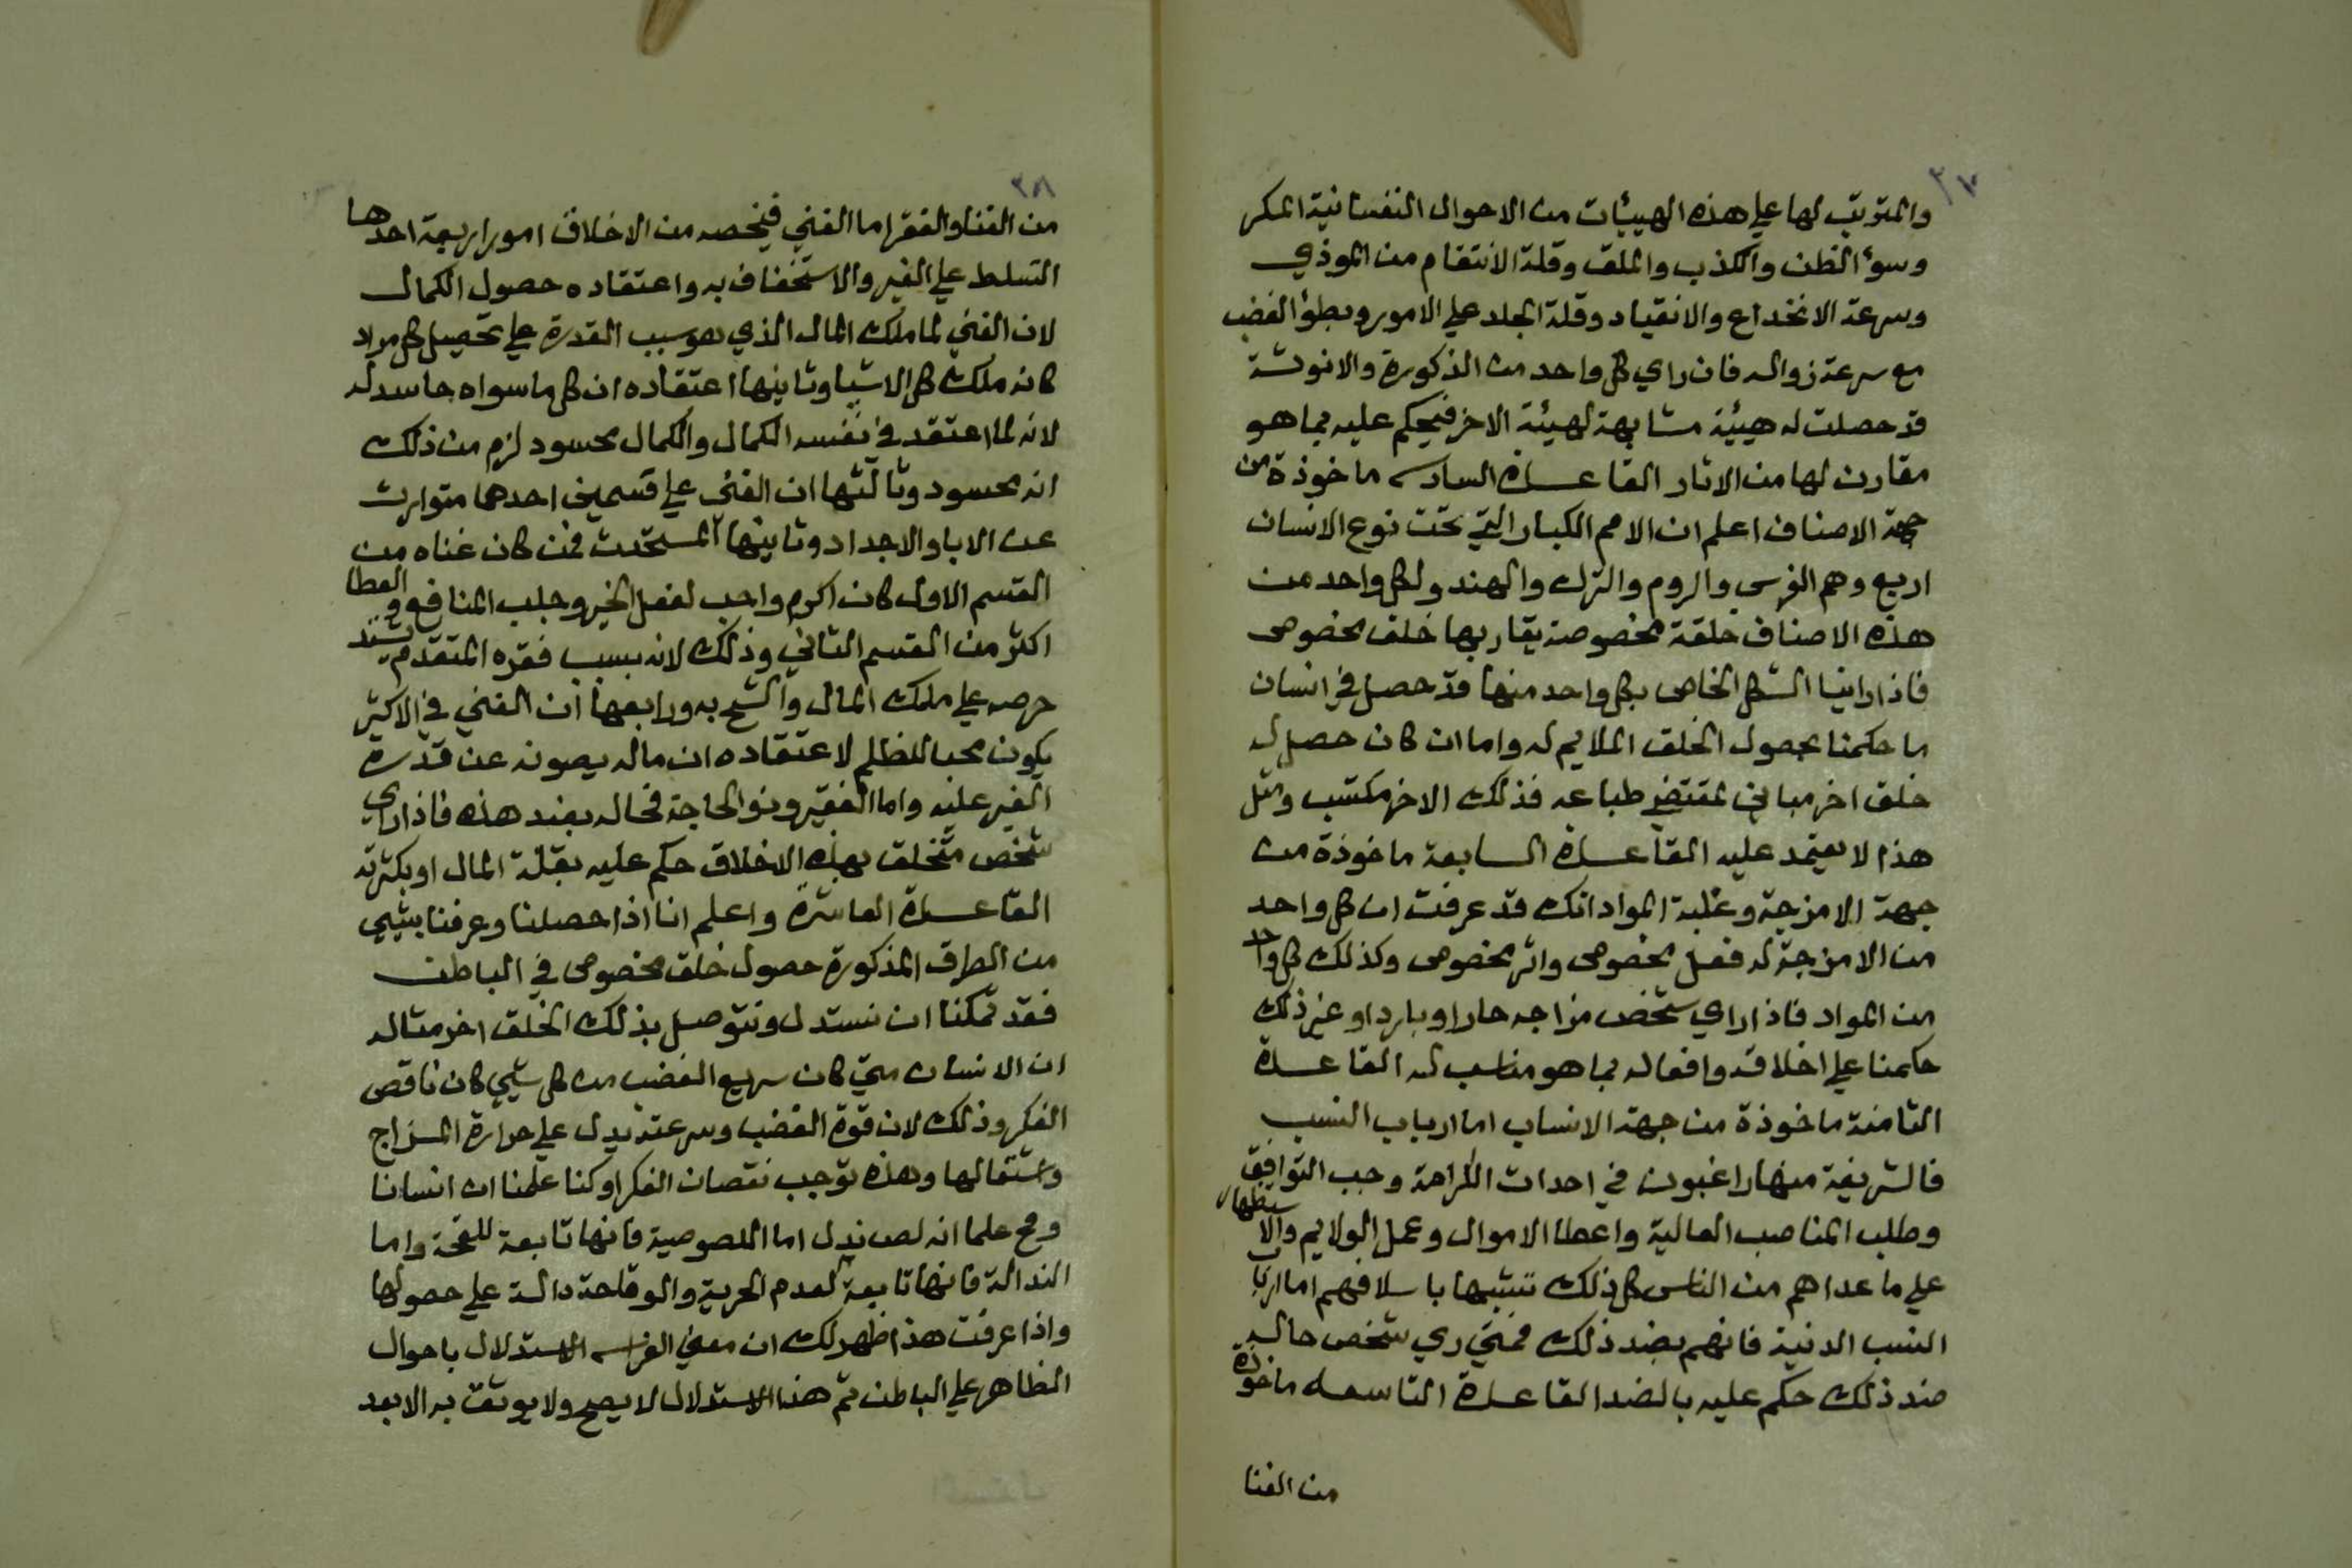 ٣٧
والمترتب لها علي هذه الهيئات من الاحوال النفسانية المكر
وسوٴ الظن والكذب والملق وقلة الانتقام من الموذي
وسرعة الانخداع والانقياد وقلة الجلد علي الامور وبطؤ الغضب
مع سرعة زواله فان راي كل واحد من الذكورة والانوثة
قد حصلت له هيئية مشابهة لهيئة الاخر فيحكم عليه بما هو
مقارن لها من الاثار القاعدة السادسه ماخوذة من
جهة الاصناف اعلم ان الامم الكبار التي تحت نوع الانسان
اربع وهم الفرس والروم والترك والهند ولكل واحد من
هذه الاصناف خلقة مخصوصة يقاربها خلق مخصوص
فاذا راينا الشكل الخاص بكل واحد منها قد حصل في انسان
ما حكمنا بحصول الخلق الملايم له واما ان كان حصل له
خلق اخر مباين لمقتضي طباعه فذلك الاخر مكتسب ومثل
هذا لا يعتمد عليه القاعدة السابعة ماخوذة من
جهة الامزجة وغلبة المواد انك قد عرفت ان كل واحد
من الامزجة له فعل مخصوص واثر مخصوص وكذلك كل واحد
من المواد فاذا راي شخص مزاجه حارا او باردا او غير ذلك
حكمنا علي اخلاقه وافعاله بما هو مناسب له القاعدة
الثامنة ماخوذة من جهة الانساب اما ارباب النسب
فالشريفة منها راغبون في احداث الكرامة وحب التوافق
وطلب المناصب العالية واعطا الاموال وعمل الولايم والاستظهار
علي ما عداهم من الناس كل ذلك تشبيها باسلافهم اما ارباب
النسب الدنية فانهم بضد ذلك فمتي ري شخص حاله
ضد ذلك حكم عليه بالضد القاعدة التاسعه ماخوذة
من الغنا
٣٨
من الغنا والفقر اما الغني فيخصه من الاخلاق امور اربعة احدها
التسلط علي الغير والاستخفاف به واعتقاده حصول الكمال
لان الغني لما ملك المال الذي هو سبب القدرة علي تحصيل كل مراد
كانه ملك كل الاشيا وثانيها اعتقاده ان كل ما سواه حاسد له
لانه لما اعتقد في نفسه الكمال والكمال محسود لزم من ذلك
انه محسود وثالثها ان الغني علي قسمين احدهما متوارث
عن الابا والاجداد وثانيها المستحدث فمن كان غناه من
القسم الاول كان اكرم واحب لفعل الخير وجلب المنافع والعطا
اكثر من القسم الثاني وذلك لانه بسبب فقره المتقدم يشتد
حرصه علي ملك المال والشح به ورابعها ان الغني في الاكثر
يكون محبا للظلم لاعتقاده ان ماله يصونه عن قدرة
الغير عليه واما الفقير وذو الحاجة فحاله بضد هذه فاذا راي
شخص متخلق بهذه الاخلاق حكم عليه بقلة المال او بكثرته
القاعدة العاشرة واعلم انا اذا حصلنا وعرفنا بشي
من الطرق المذكورة حصول خلق مخصوص في الباطن
فقد تمكنا ان نستدل ونتوصل بذلك الخلق اخر مثاله
ان الانسان متي كان سريع الغضب من كل شي كان ناقص
الفكر وذلك لان قوة الغضب وسرعته يدل علي حرارة المزاج
واشتعالها وهذه توجب نقصان الفكر او كنا علمنا ان انسانا
وقح علما انه لص نذل اما اللصوصية فانها تابعة للقحة واما
النذالة فانها تابعة لعدم الحرية والوقاحة دالة علي حصولها
واذا عرفت هذا ظهر لك ان معني الفراسه الاستدلال باحوال
الظاهر علي الباطن ثم هذا الاستدلال لا يصح ولا يوثق به الا بعد